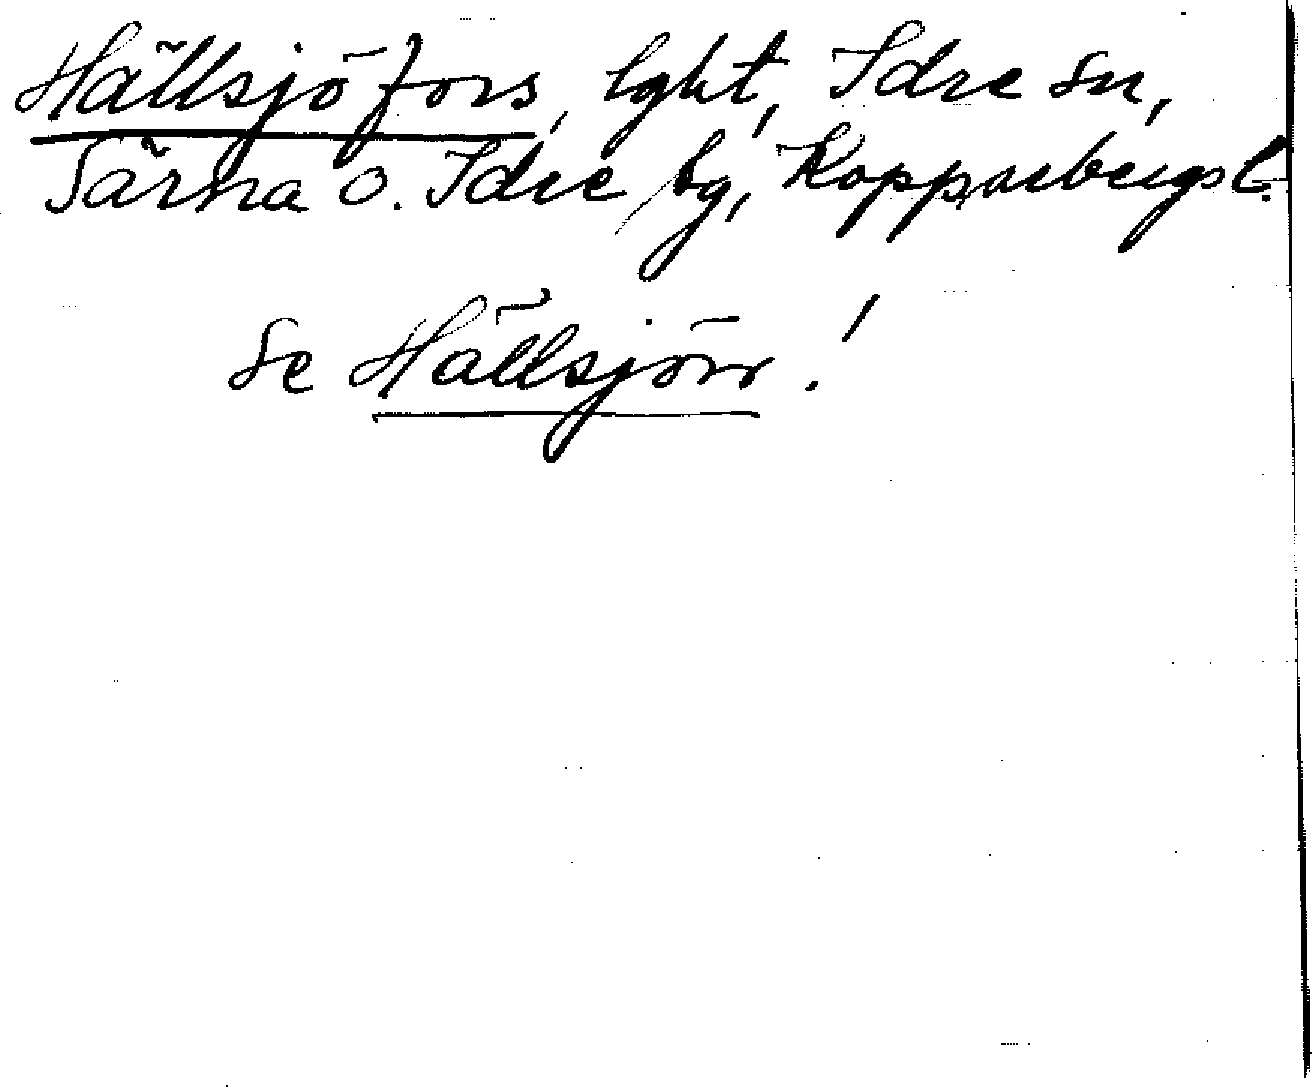 Hällsjöfors, lght, Idre sn,
Särna o. Idre tg, Kopparbergs l.
Se Hällsjön!